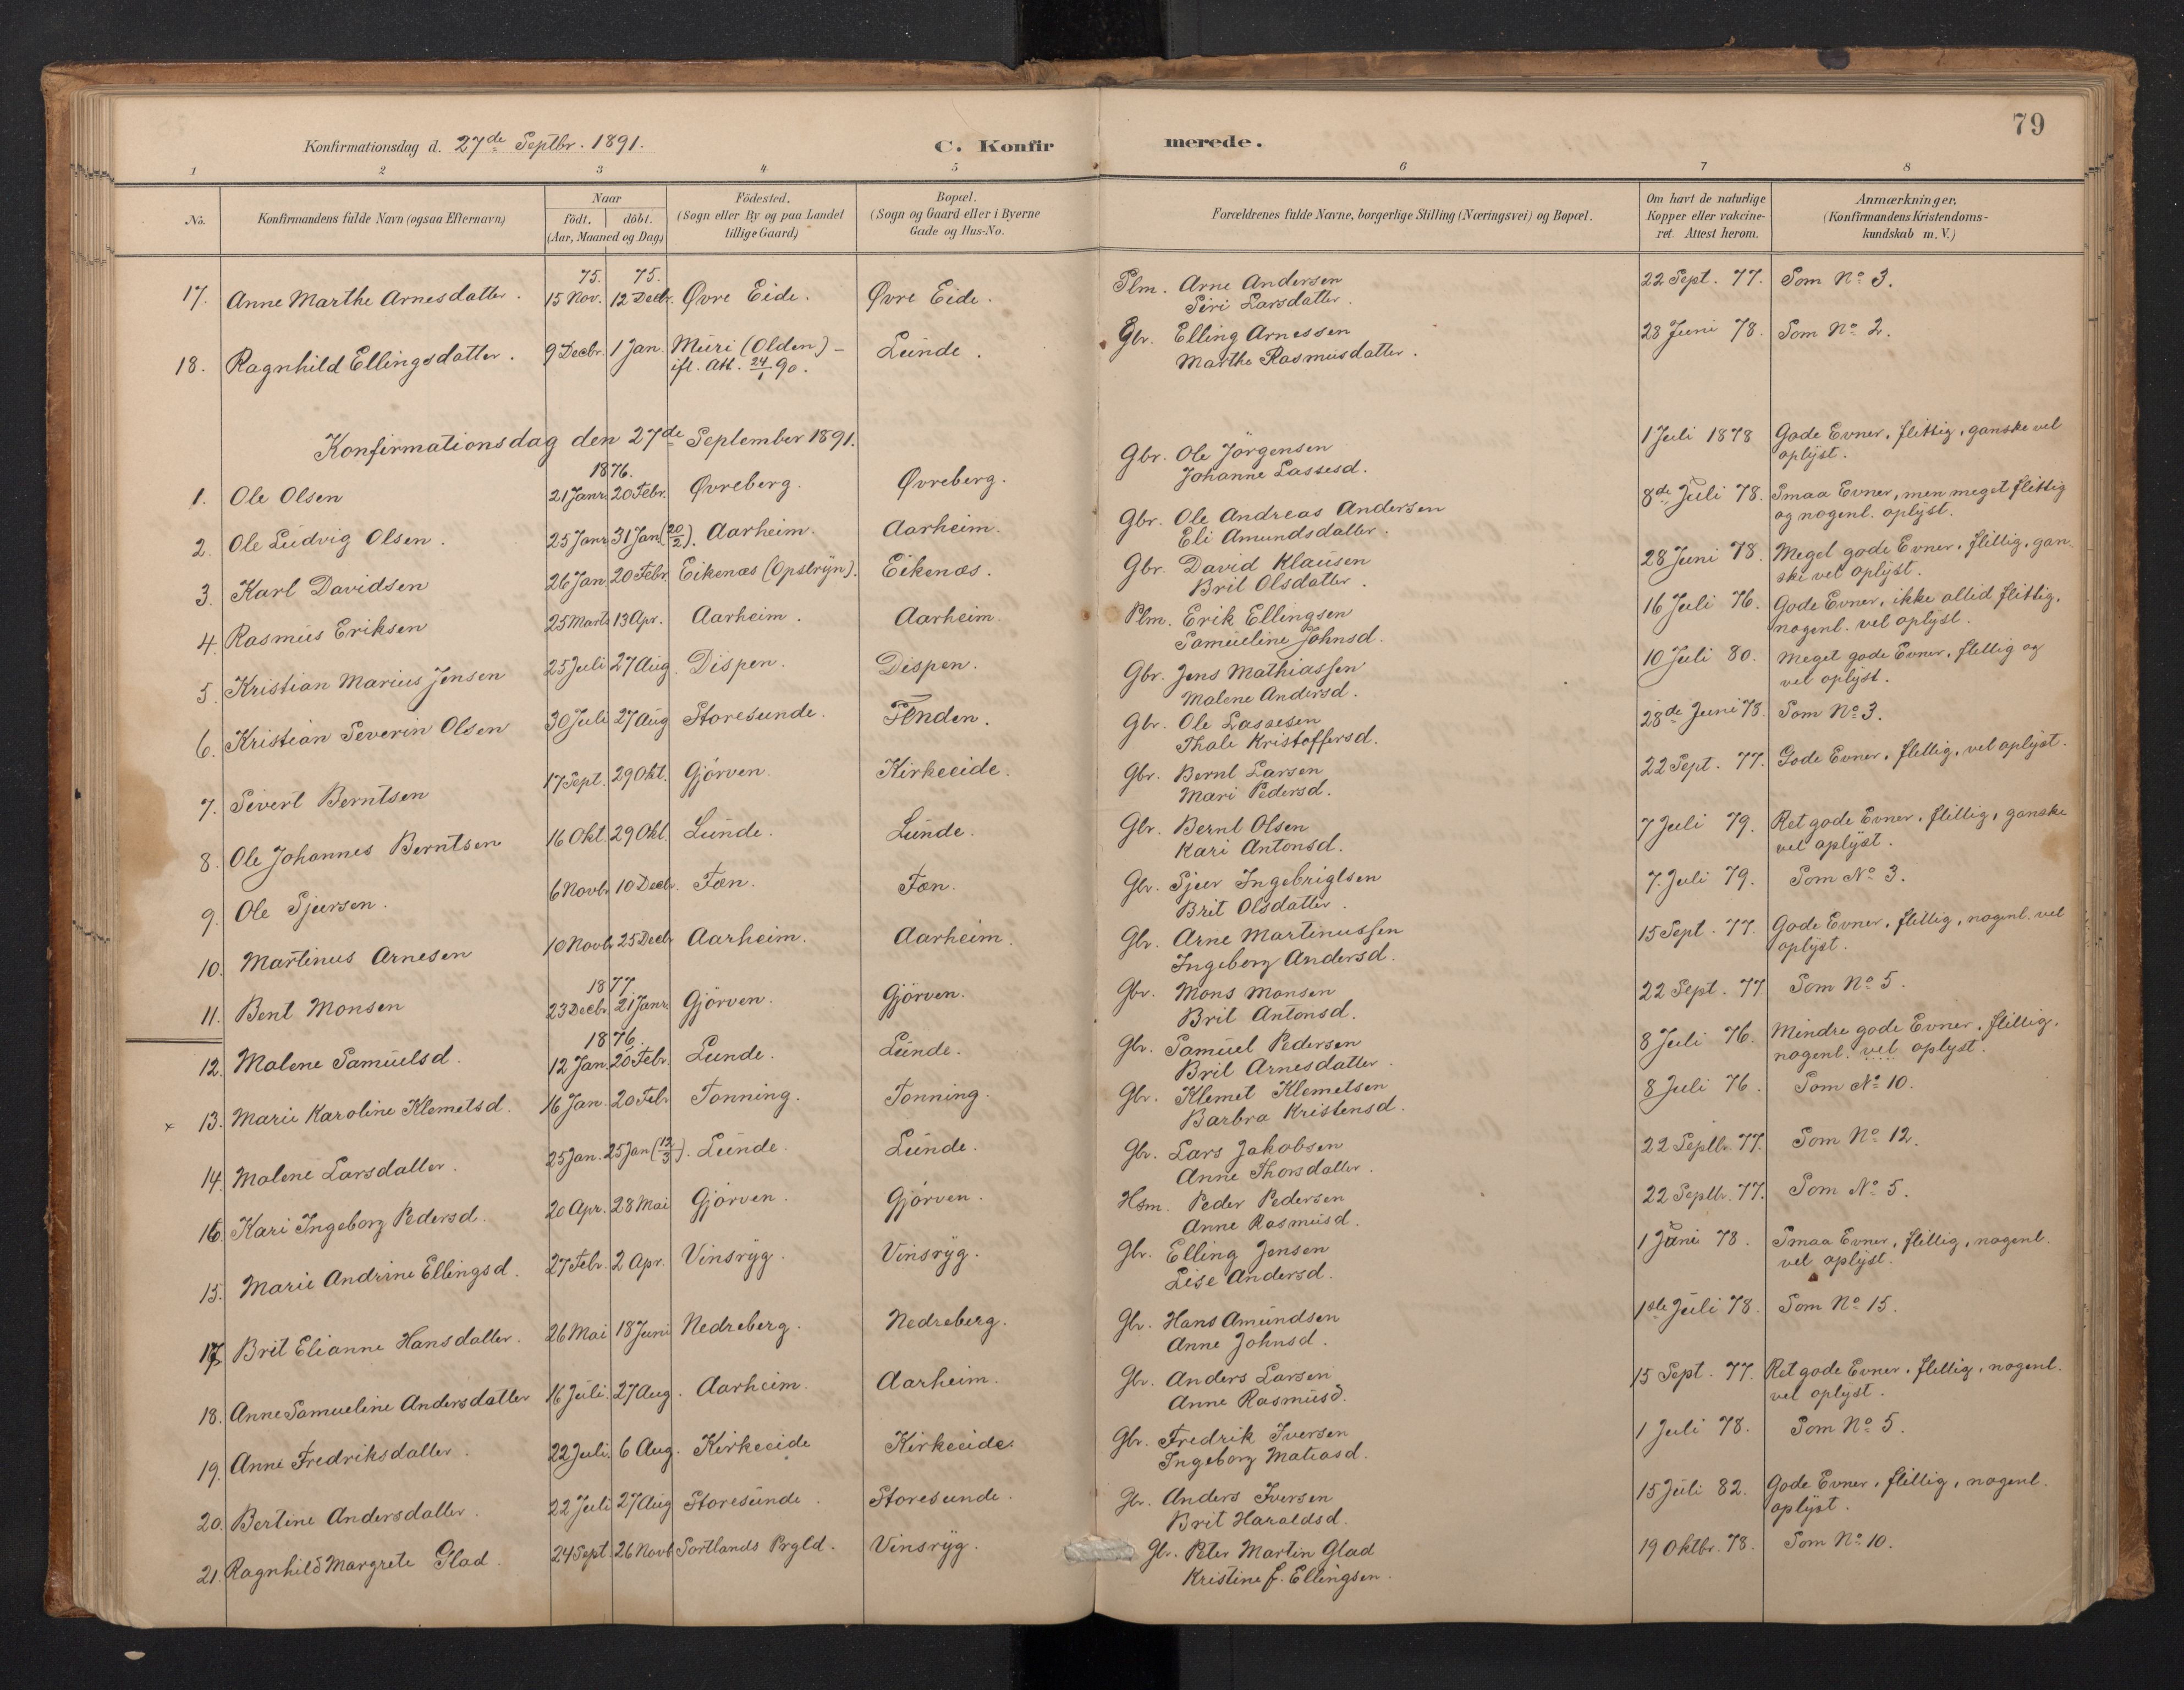 79
Konfirmationsdag d. 27de Septbr. 1891. C. Konfirmerede.
1 2 3 4 5 6 7 8
No. Konfirmandens fulde Navn (ogsaa Efternavn) Naar født. døbt. (Aar, Maaned og Dag) Fødested. (Sogn eller By og paa Landet tillige Gaard) Bopæl. (Sogn og Gaard eller i Byerne Gade og Hus-No. Forældrenes fulde Navne, borgerlige Stilling (Næringsvei) og Bopæl. Om havt de naturlige Kopper eller vakcineret. Attest herom. Anmærkninger. (Konfirmandens Kristendomskundskab m. V.)
75. 75.
17. Anne Marthe Arnesdatter. 15 Nov. 12 Decbr. Øvre Eide. Øvre Eide. Plm. Arne Andersen 22 Sept. 77. Som No 3.
Siri Larsdatter.
18. Ragnhild Ellingsdatter. 9 Decbr. 1 Jan. Muri (Olden) - Lunde. Gbr. Elling Arnessen 28 Juni 78. Som No 2.
ifl. Att. 24/1 90. Marthe Rasmusdatter.
Konfirmationsdag den 27de September 1891.
1876.
1. Ole Olsen 21 Janr. 20 Febr. Øvreberg. Øvreberg. Gbr. Ole Jørgensen 1 Juli 1878 Gode Evner, flittig, ganske vel
Johanne Lassesd. oplyst.
2. Ole Ludvig Olsen. 25 Janr. 31 Jan (20/2). Aarheim. Aarheim. Gbr. Ole Andreas Andersen 8de Juli 78. Smaa Evner, men meget flittig
Eli Amundsdatter. og nogenl. oplyst.
3. Karl Davidsen 26 Jan 20 Febr. Eikenæs (Opstryn). Eikenæs. Gbr. David Klausen 28 Juni 78. Meget gode Evner, flittig, gan
Brit Olsdatter. ske vel oplyst.
4. Rasmus Eriksen 25 Marts 13 Apr. Aarheim. Aarheim. Plm. Erik Ellingsen 16 Juli 76. Gode Evner, ikke altid flittig,
Samueline Johnsd. nogenl. vel oplyst.
5. Kristian Marius Jensen 25 Juli 27 Aug. Dispen. Dispen. Gbr. Jens Mathiassen 10 Juli 80. Meget gode Evner, flittig og
Malene Andersd. vel oplyst.
6. Kristian Severin Olsen 30 Juli 27 Aug Storesunde. Gbr. Ole Lassesen 28de Juni 78. Som No 3.
Thale Kristoffersd.
7. Sivert Berntsen 17 Sept. 29 Okt. Gjørven. Kirkeeide. Gbr. Bernt Larsen 22 Sept. 77. Gode Evner, flittig, vel oplyst.
Mari Pedersd.
8. Ole Johannes Berntsen 16 Okt. 29 Okt. Lunde. Lunde. Gbr. Bernt Olsen 7 Juli 79. Ret gode Evner, flittig, ganske
Kari Antonsd. vel oplyst.
9. Ole Sjursen. 6 Novbr. 10 Decbr. Fæn. Fæn. Gbr. Sjur Ingebrigtsen 7. Juli 79. Som No 3.
Brit Olsdatter.
10. Martinus Arnesen 10 Novbr. 25 Decbr Aarheim. Aarheim. Gbr. Arne Martinussen 15 Sept. 77. Gode Evner, flittig, nogenl. vel
Ingeborg Andersd. oplyst.
1877.
11. Bent Monsen 23 Decbr. 21 Janr. Gjørven. Gjørven. Gbr. Mons Monsen 22 Sept. 77 Som No 5.
Brit Antonsd.
1876.
12. Malene Samuelsd. 12 Jan. 20 Febr. Lunde. Lunde. Gbr. Samuel Pedersen 8 Juli 76. Mindre gode Evner, flittig,
Brit Arnesdatter. nogenl. vel oplyst.
x 13. Marie Karoline Klemetsd. 16 Jan. 20 Febr Tonning. Tonning. Gbr. Klemet Klemetsen 8 Juli 76. Som No 10.
Barbra Kristensd.
14. Malene Larsdatter. 25 Jan. 25 Jan (12/3). Lunde. Lunde. Gbr. Lars Jakobsen 22 Septbr. 77. Som No 12.
Anne Thorsdatter.
16. Kari Ingeborg Pedersd. 20 Apr. 28 Mai Gjørven. Gjørven. Hsm. Peder Pedersen 22 Septbr. 77. Som No 5.
Anne Rasmusd.
15. Marie Andrine Ellingsd. 27 Febr. 2 Apr. Vinsryg. Vinsryg. Gbr. Elling Jensen 1 Juni 78. Smaa Evner, flittig, nogenl.
Lise Andersd. vel oplyst.
17. Brit Elianne Hansdatter. 26 Mai 18 Juni Nedreberg. Nedreberg. Gbr. Hans Amundsen 1ste Juli 78. Som No 15.
Anne Johnsd.
18. Anne Samueline Andersdatter 16 Juli. 27 Aug. Aarheim. Aarheim. Gbr. Anders Larsen 15 Sept. 77. Ret gode Evner, flittig, nogenl.
Anne Rasmusd. vel oplyst.
19. Anne Fredriksdatter. 22 Juli. 6 Aug. Kirkeeide Kirkeeide. Gbr. Fredrik Iversen 1 Juli 78. Som No 5.
Ingeborg Matiasd.
20. Bertine Andersdatter. 22 Juli 27 Aug Storesunde. Storesunde. Gbr. Anders Iversen 15 Juli 82. Gode Evner, flittig, nogenl.
Brit Haraldsd. oplyst.
21. Ragnhild Margrete Glad. 24 Sept. 26 Novb. Sortlands Prgld. Vinsryg. Gbr. Peter Martin Glad 19 Oktbr. 78. Som No 10.
Kristine f. Ellingsen.